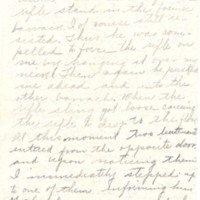 rifle stand in the former
barracks. I of course still re-
sisted. Thus he was com-
pelled to force the rifle on
me by hanging it over my
neck. Then again he pushed
me ahead and into the
other barracks. When the
rifle sling got loose causing
the rifle to drop to the floor.
At this moment two lieutenants
entered from the opposite door
and upon noticing them
I immediately stepped up
to one of them informing him